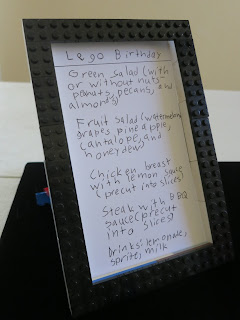 Lego Birthday
Green Salad (with
or without nuts-
peanuts, pecans, and
almonds)
Fruit Salad (watermelon,
grapes, pineapple,
cantalope, and
honeydew)
Chicken breast
with lemon sauce
(precut into slices)
Steak with BBQ
sauce (precut
into slices)
Drinks: lemonade,
sprite, milk